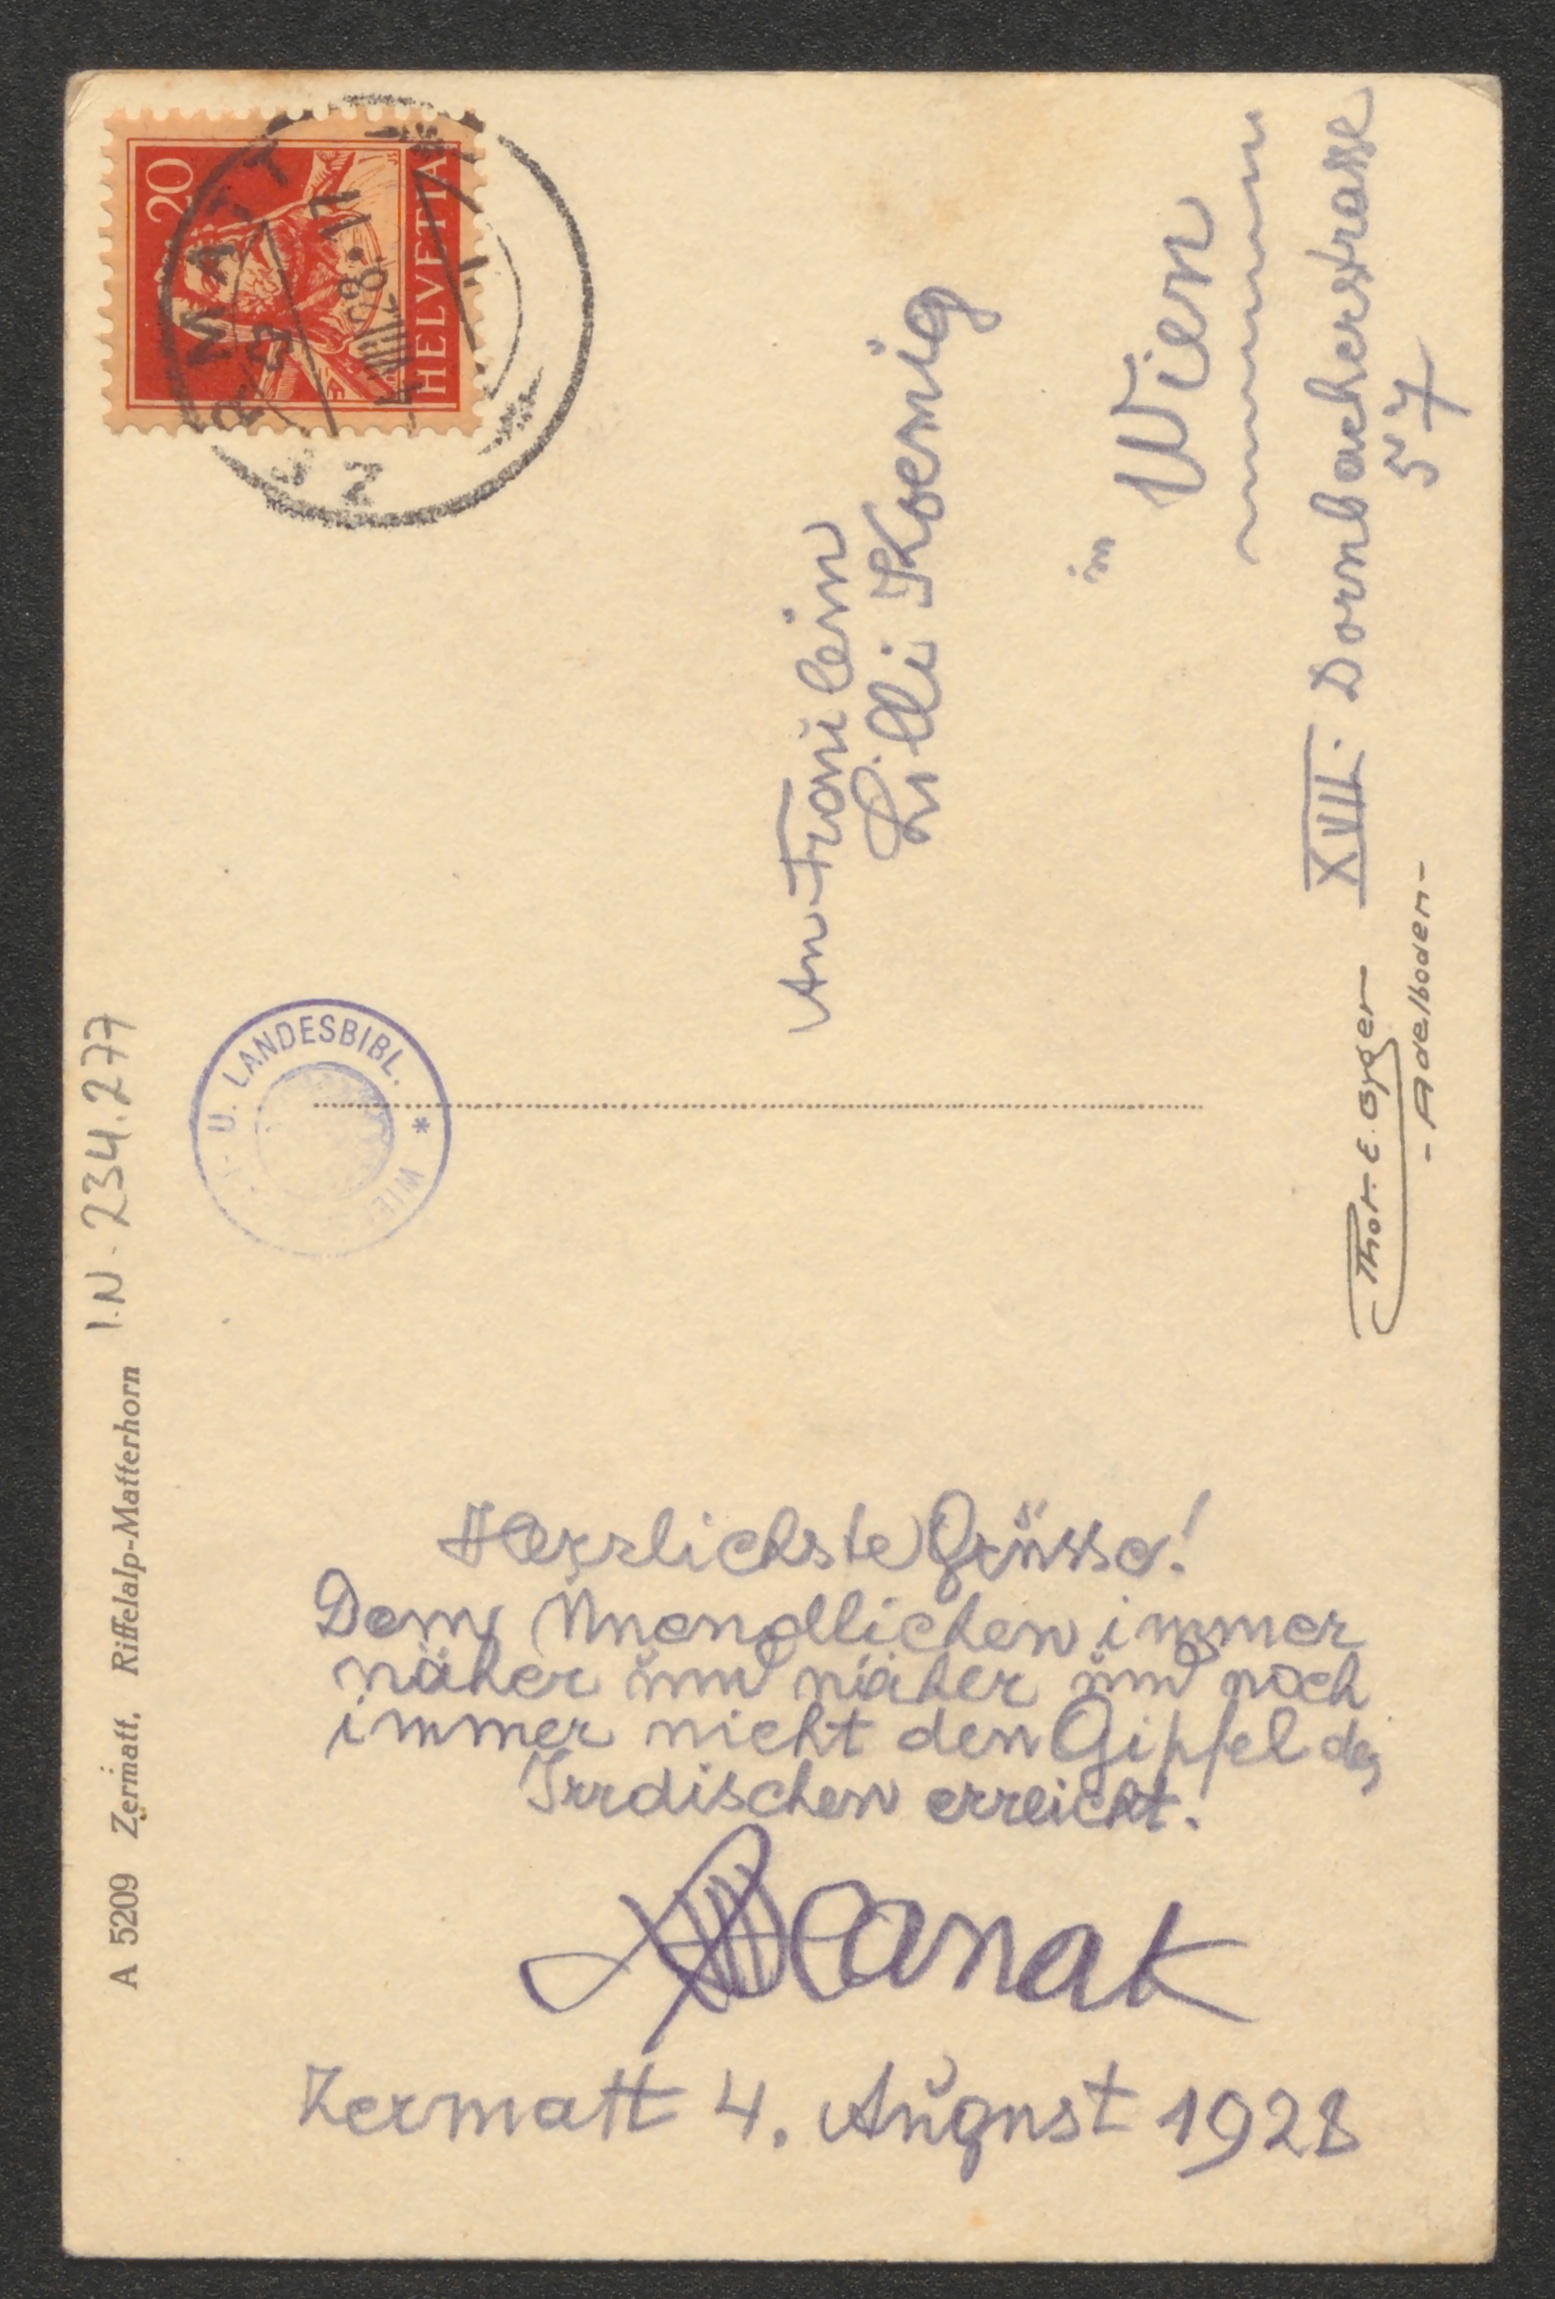 Herzlichste Grüsse!
Dem Unendlichen immer
näher und näher und noch
immer nicht den Gipfel des
Irrdischen erreicht!
Hanak
Zermatt 4. August 1928
An Fräulein
Lilli Koenig
in
Wien
XVII. Dornbacherstrasse
57
Phot. E. Gyger
- Adelboden -
A 5209 Zermatt. Riffelalp-Matterhorn
I.N. 234.277
U. LANDESBIBL. * WIE
20
HELVETIA
ZERMATT
4. VIII. 28. 17